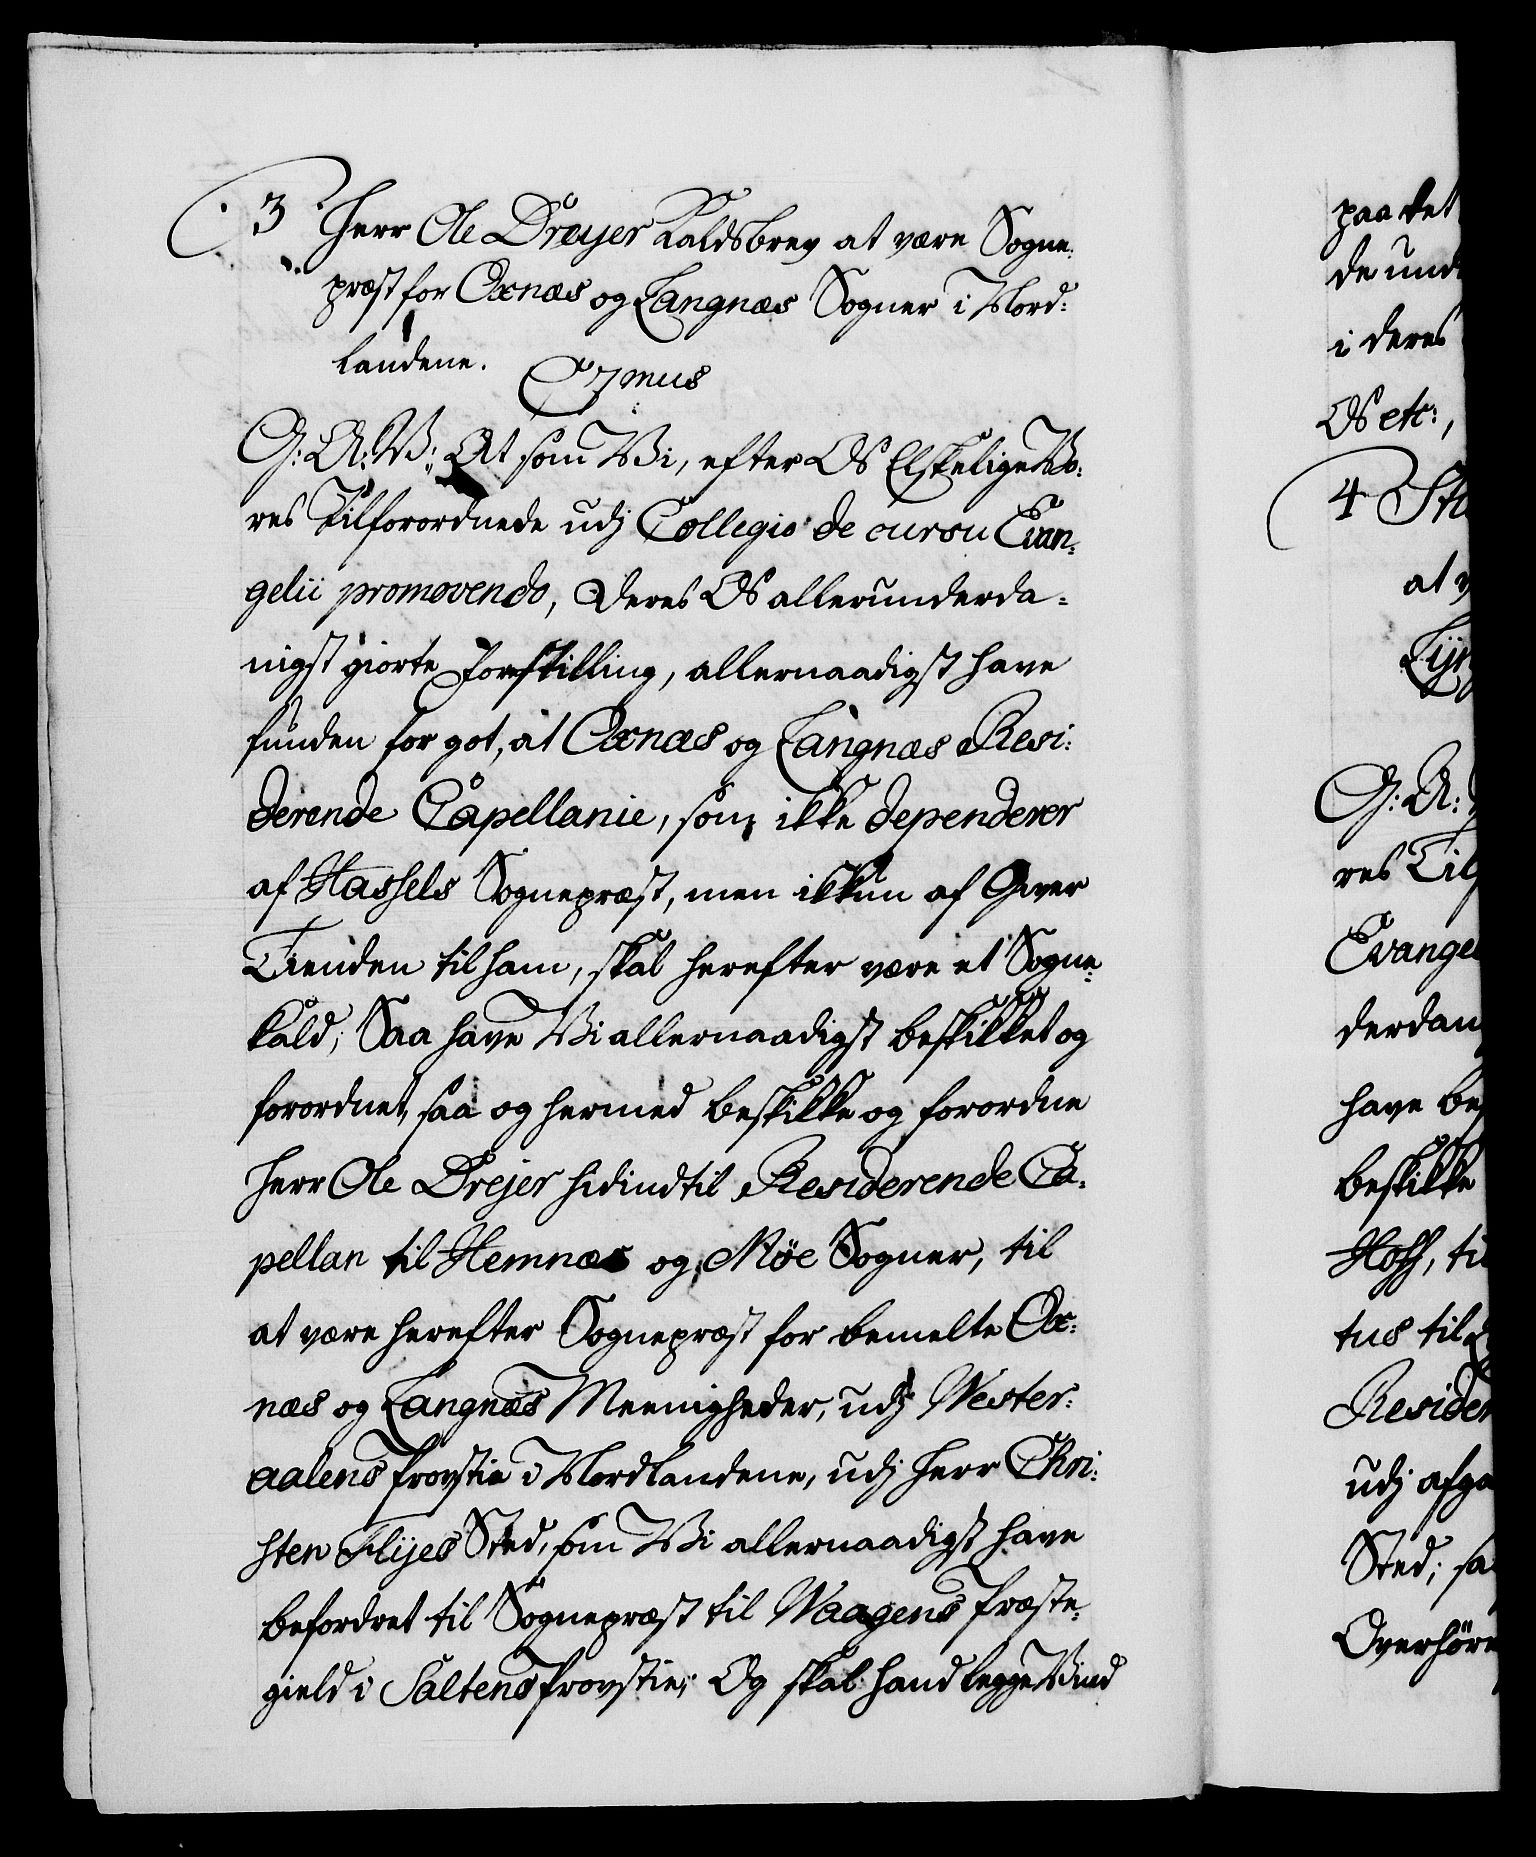 3 Herr Ole Dreyer Kaldsbrev at være Sogne:
præst for Oxnæs og Langnæs Sogner i Nord:
landene.
C7mus
G: A: V: At som Vi, efter Os Elskelige Vo:
res Tilforordnede udj Collegio de cursu Evan:
gelii promovendo, deres Os allerunderda:
nigst giorte Forestilling, allernaadigst have
funden for got, at Oxnæs og Langnæs Resi:
derende Capellanie, som ikke dependerer
af Hassels Sognepræst, men ikkun af Giver
Tienden til ham, skal herefter være et Sogne
kald; Saa have Vi allernaadigst beskikket og
forordnet, saa og hermed beskikke og forordne
Herr Ole Drejer hidindtil Residerende Ca:
pellan til Hemnæs og Møe Sogner, til
at være herefter Sognepræst for bemelte Ox:
næs og Langnæs Meenigheder, udj Wester:
aalens Provstie i Nordlandene, udj Herr Chri:
sten Flijes Sted, som Vi allernaadigst have
befordret til Sognepræst til Waagens Præste:
gield i Saltens Provstie; Og skal hand legge Vind
paa det
de und
i deres
Os etc:,
4
at
G: A:
res Til
Evangel
derdan
have be
beskikke
Hoff, ti
tus til
Residen
udj afga
Sted; sa
Overhøre